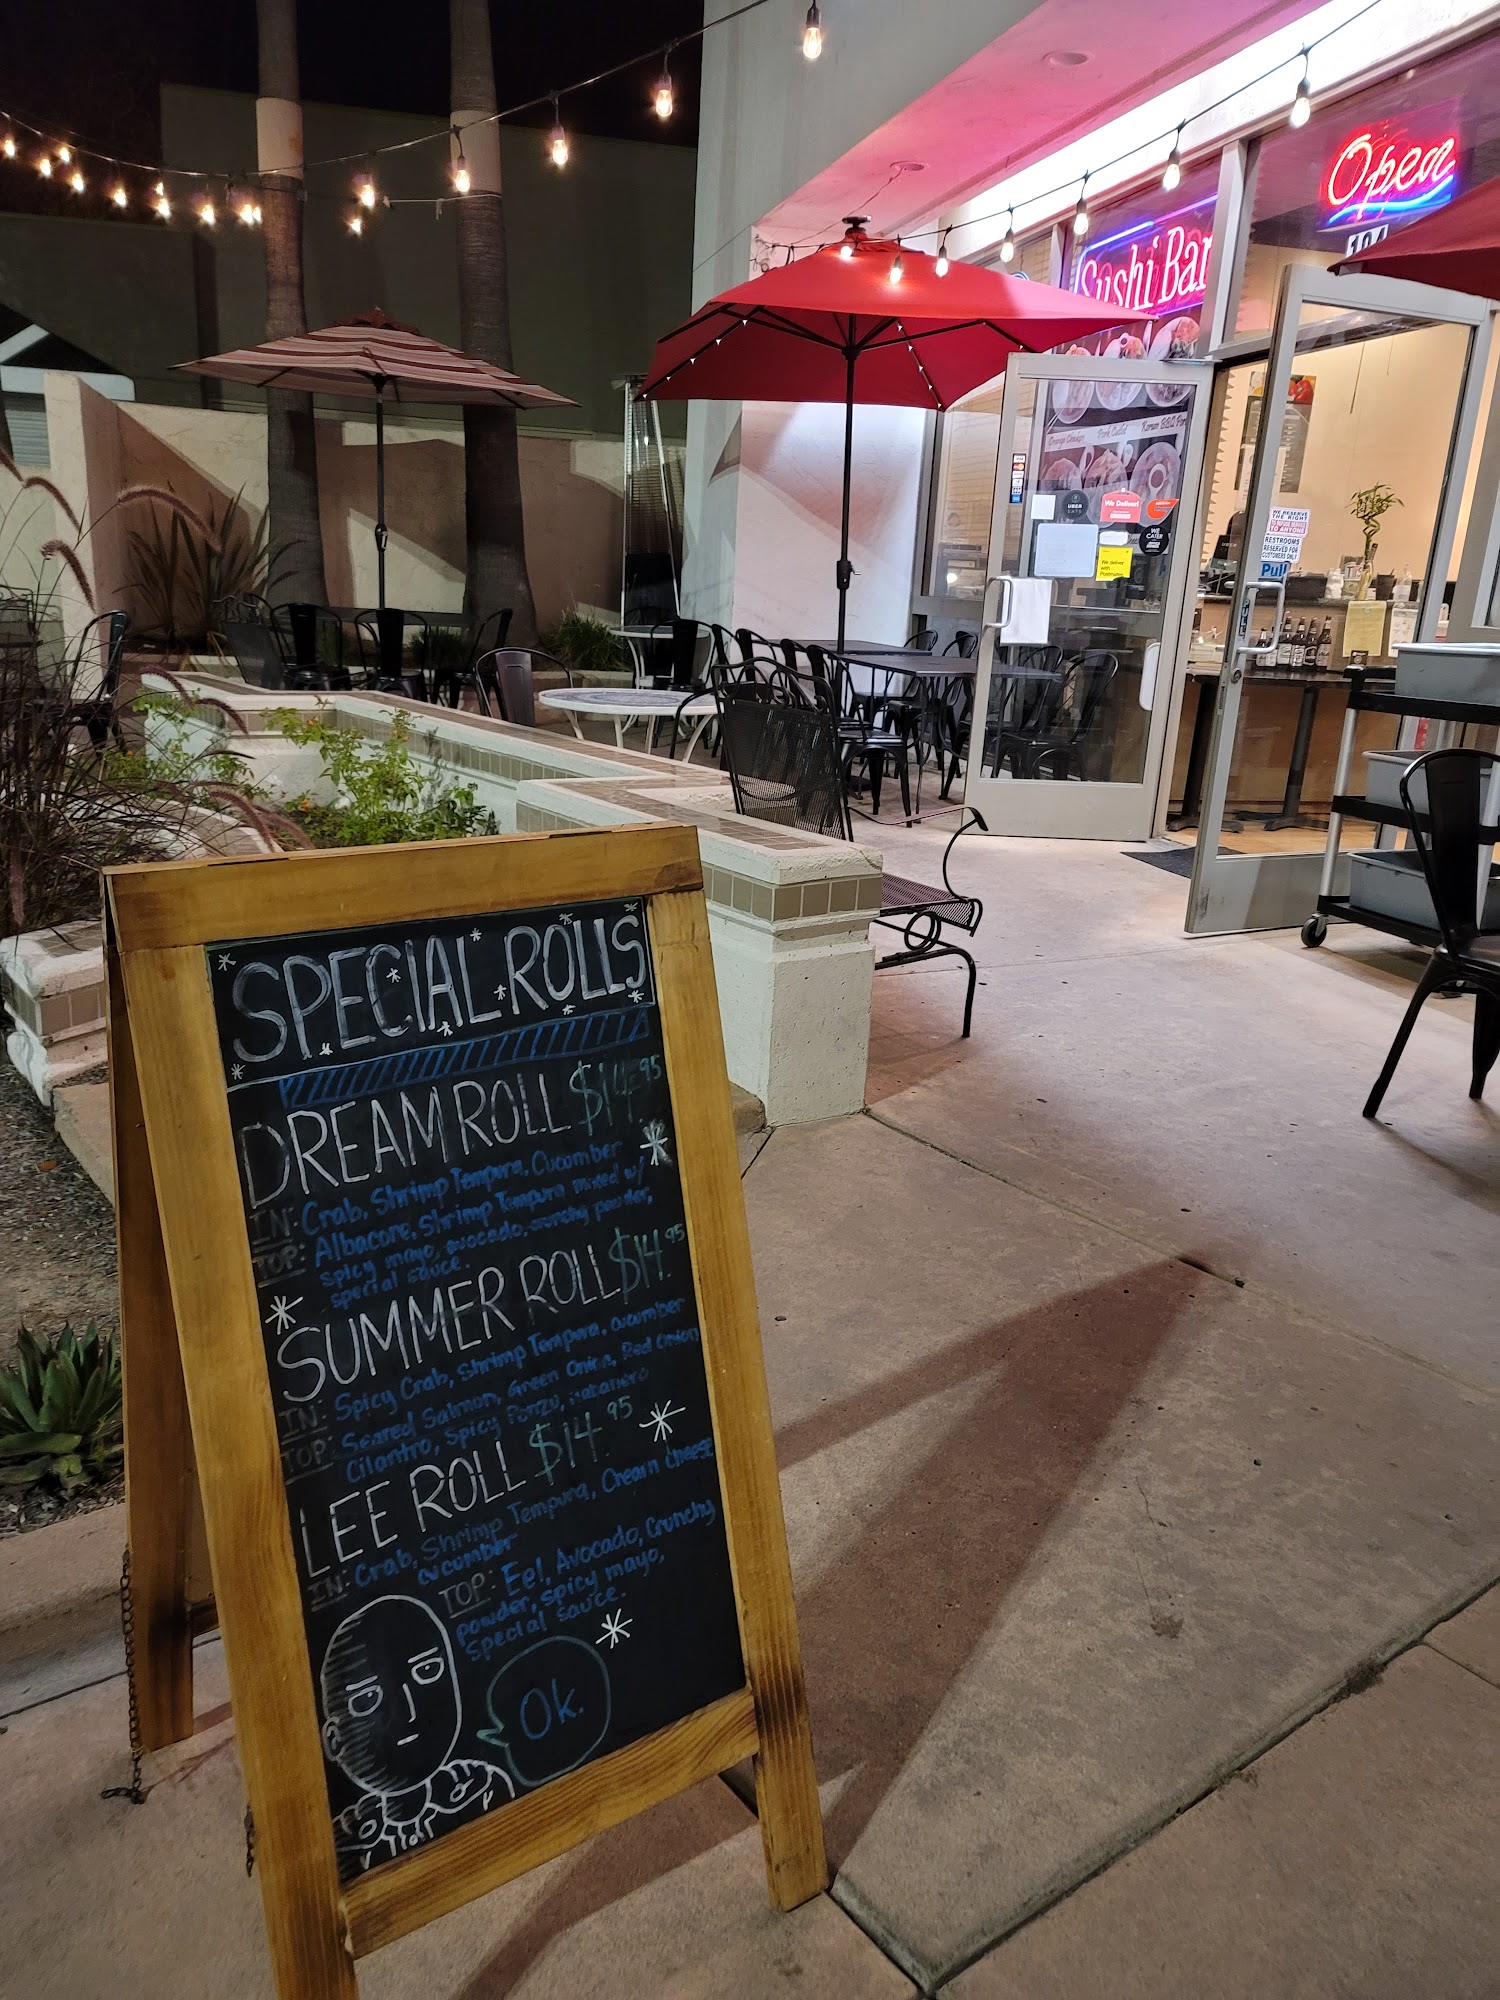 Open
Sushi Bar
Orange Chicken
Pork Cutlet
Korean BBQ Por
UBER
EATS
We Deliver!
WE
CATER
We deliver
with
Postmates
WE RESERVE
THE RIGHT
TO ANYONE
RESTROOMS
RESERVED FOR
CUSTOMERS ONLY
Pull
SPECIAL ROLLS
DREAM ROLL $14.95
IN: Crab, Shrimp Tempura, Cucumber
TOP: Albacore, Shrimp Tempura mixed w/
spicy mayo, avocado, crunchy powder,
special sauce.
SUMMER ROLL $14.95
IN: Spicy Crab, Shrimp Tempura, cucumber
TOP: Seared Salmon, Green Onion, Red Onion
Cilantro, Spicy Ponzu, Habanero
LEE ROLL $14.95
IN: Crab, Shrimp Tempura, Cream cheese
cucumber
TOP: Eel, Avocado, Crunchy
powder, spicy mayo,
Special sauce.
Ok.